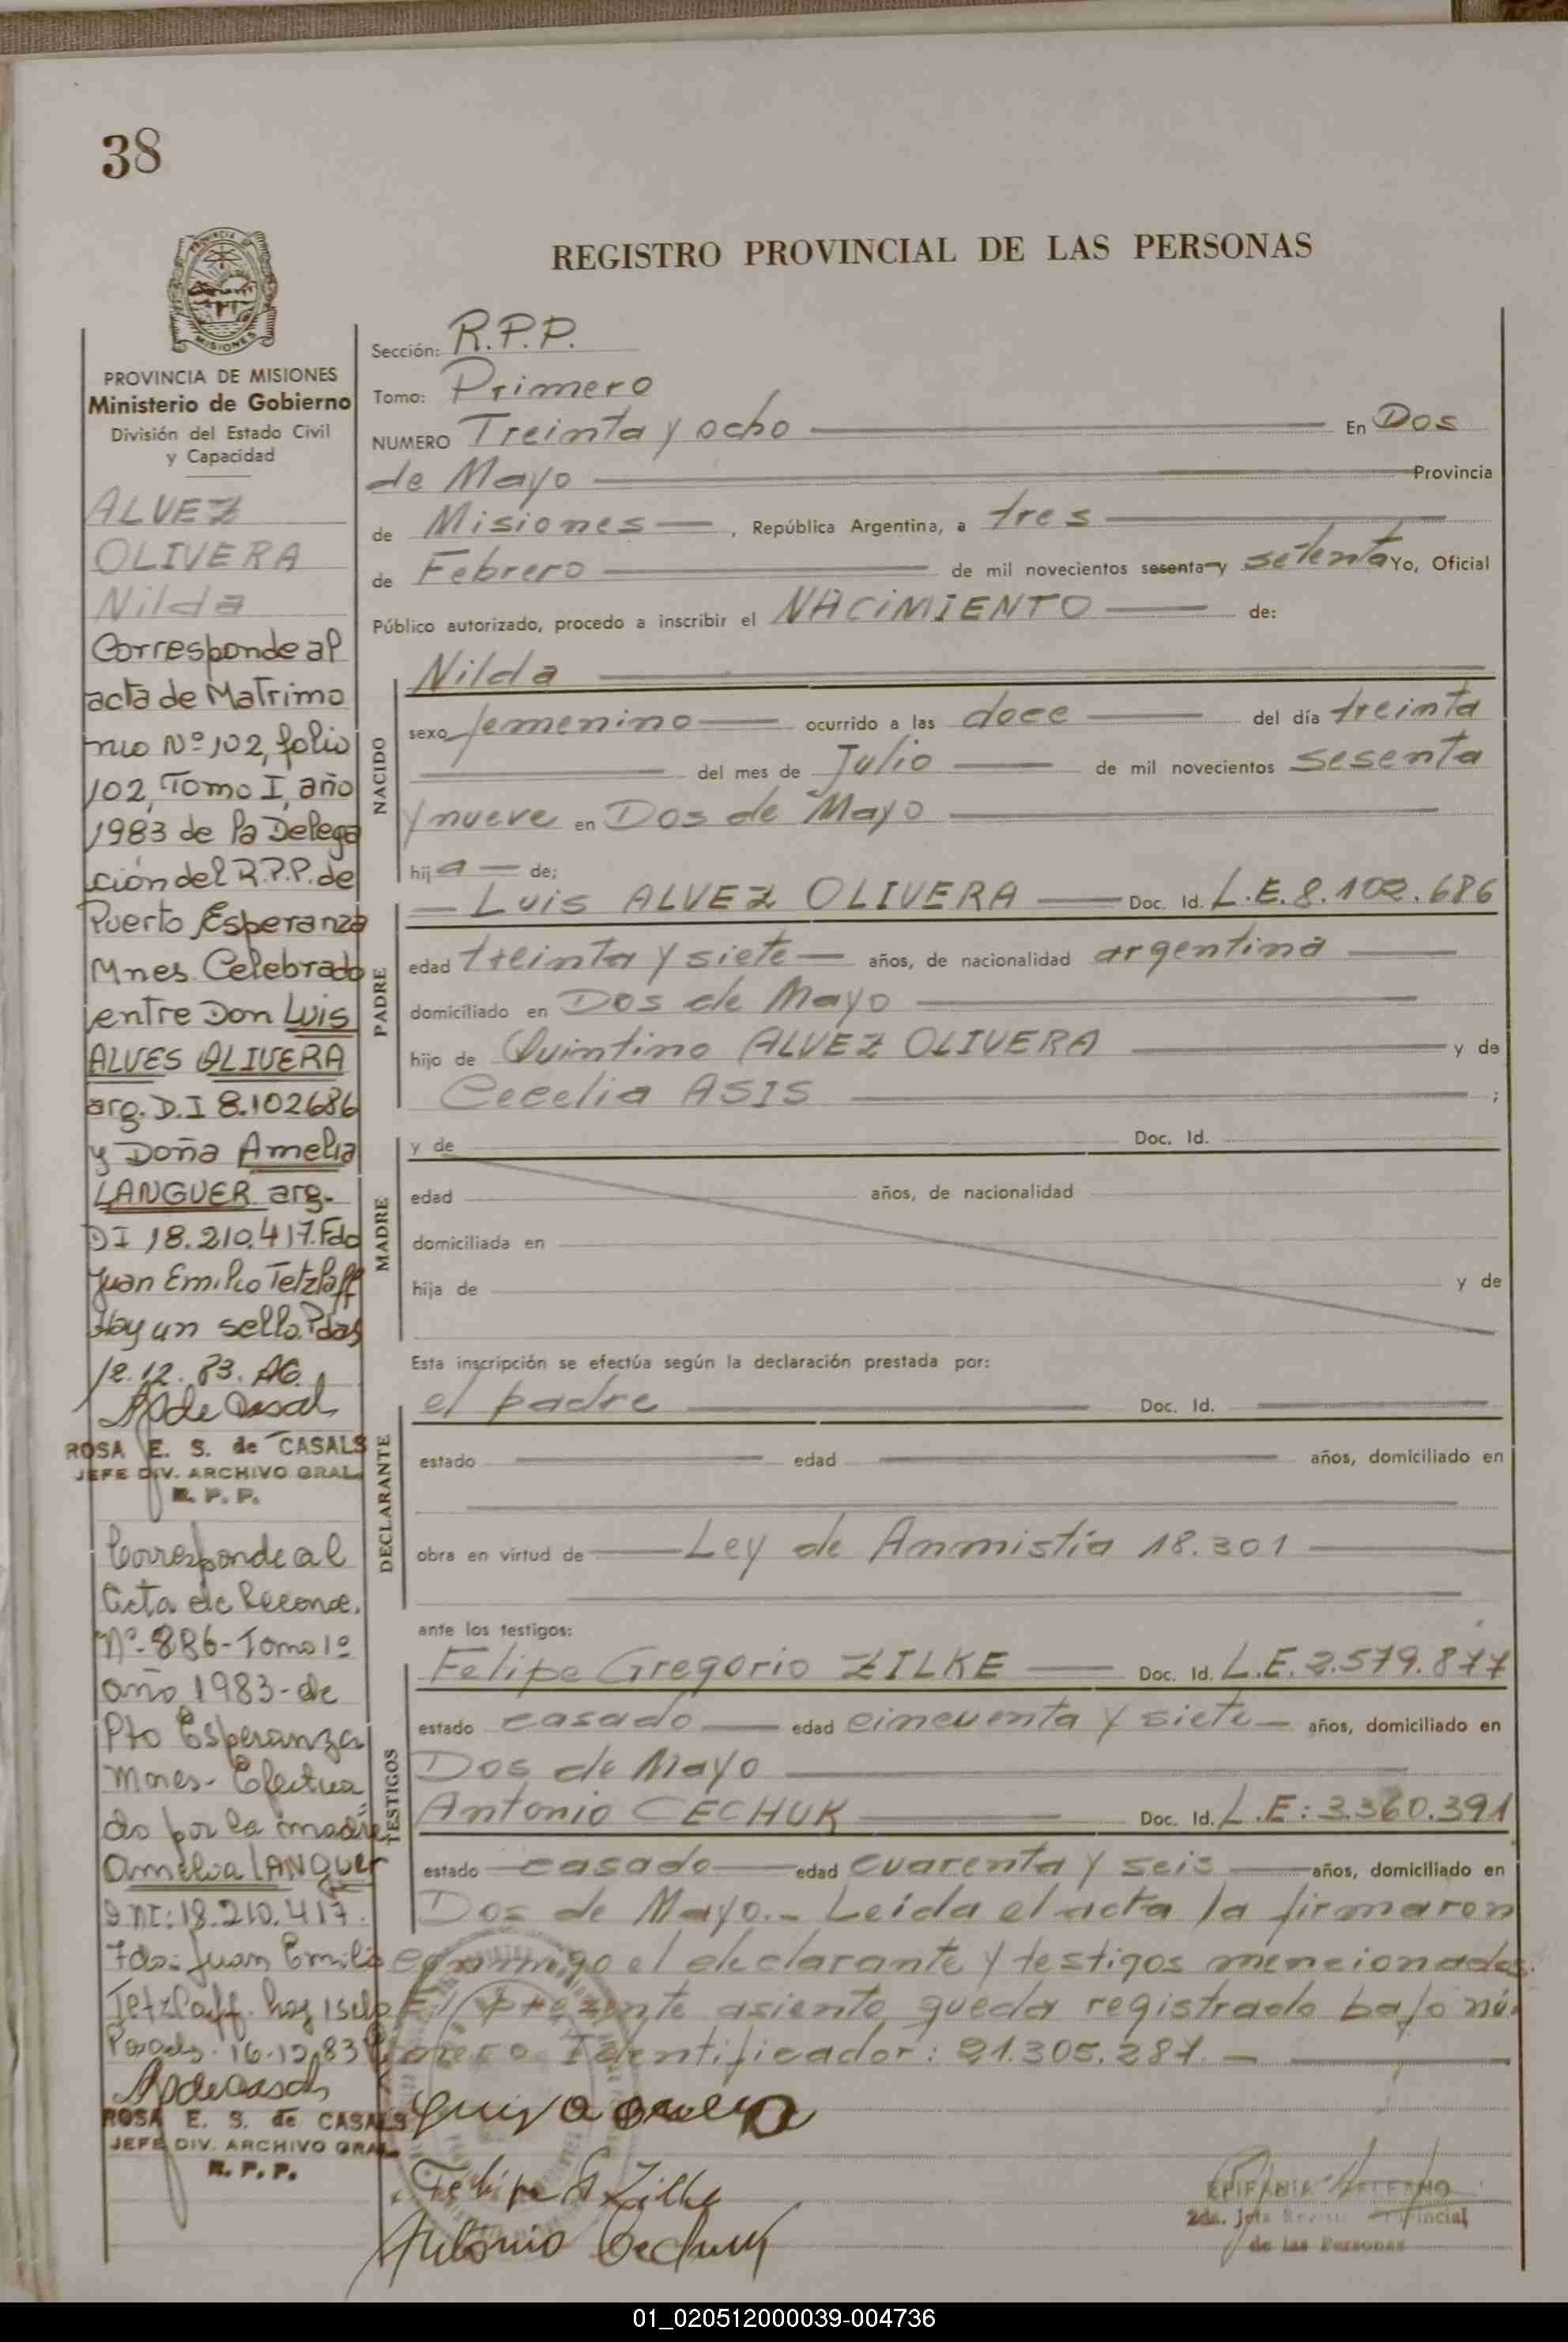 38
REGISTRO PROVINCIAL DE LAS PERSONAS
PROVINCIA DE MISIONES
Ministerio de Gobierno
División del Estado Civil
y Capacidad
ALVEZ
OLIVERA
Nilda
Corresponde al
acta de Matrimo
nio Nº 102, folio
102, Tomo I, año
1983 de la Delega
ción del R.P.P. de
Puerto Esperanza
Mnes. Celebrado
entre Don Luis
ALVES OLIVERA
arg. D.I 8.102686
y Doña Amelia
LANGUER arg.
DI 18.210.417. Fdo
Juan Emilio Tetzlaff
Hay un sello. Pdas
12.83. AG.
ROSA E. S. de CASALS
JEFE DIV. ARCHIVO GRAL.
R. P. P.
Corresponde al
Acta de Reconoc.
Nº 886-Tomo 1º
año 1983-de
Pto Esperanza
Mnes- Efectua
do por la madre
Amelia LANGUER
DNI: 18.210.417.
Fdo: Juan Emilio
Tetzlaff. hay 1 sello
Posadas. 16-12-83
ROSA E. S. de CASALS
JEFE DIV. ARCHIVO GRAL.
R. P. P.
Sección: R.P.P.
Tomo: Primero
NUMERO Treinta y ocho En Dos
de Mayo Provincia
de Misiones , República Argentina, a tres
de Febrero de mil novecientos sesenta y setenta Yo, Oficial
Público autorizado, procedo a inscribir el NACIMIENTO de:
NACIDO
Nilda
sexo femenino ocurrido a las doce del día treinta
del mes de Julio de mil novecientos sesenta
y nueve en Dos de Mayo
hija de;
PADRE
Luis ALVEZ OLIVERA Doc. Id. L.E. 8.102.686
edad treinta y siete años, de nacionalidad argentina
domiciliado en Dos de Mayo
hijo de Quintino ALVEZ OLIVERA y de
Cecelia ASIS ;
MADRE
y de Doc. Id.
edad años, de nacionalidad
domiciliada en
hija de y de
Esta inscripción se efectúa según la declaración prestada por:
DECLARANTE
el padre Doc. Id.
estado edad años, domiciliado en
obra en virtud de Ley de Anmistía 18.301
ante los testigos:
TESTIGOS
Felipe Gregorio ZILKE Doc. Id. L.E. 2.579.877
estado casado edad cincuenta y siete años, domiciliado en
Dos de Mayo
Antonio CECHUK Doc. Id. L.E: 3.360.391
estado casado edad cuarenta y seis años, domiciliado en
Dos de Mayo.- Leída el acta la firmaron
conmigo el declarante y testigos mencionados.
El presente asiento queda registrado bajo nú-
mero Identificador: 21.305.287.-
Felipe G Zilke
Antonio Cechuk
EPIFANIA
2da. Jefa Provincial
de las Personas
01_020512000039-004736